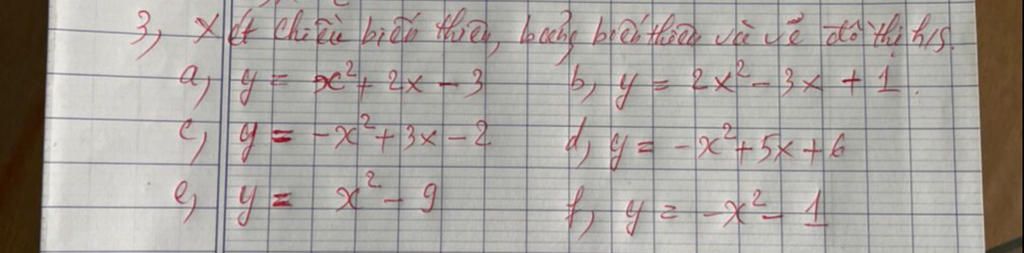 3, Xét chiều biến thiên, bảng biến thiên và vẽ đồ thị h/s.
a, y = x² + 2x - 3 b, y = 2x² - 3x + 1.
c, y = -x² + 3x - 2 d, y = -x² + 5x + 6
e, y = x² - 9 f, y = -x² - 1